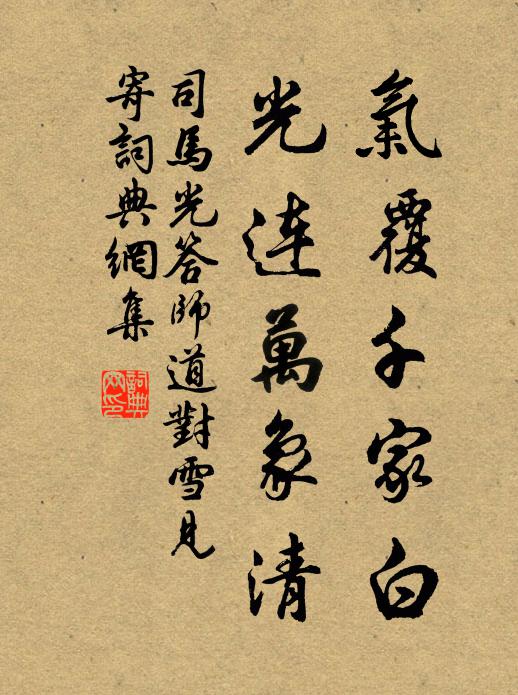 氣覆千家白
光連萬象清
司馬光答師道對雪見
寄詞典網集
詞典網印